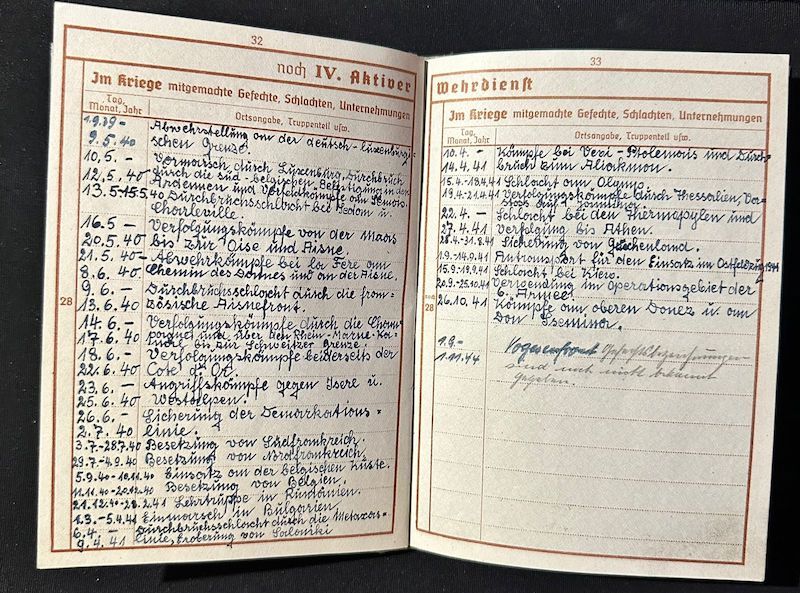 32
noch IV. Aktiver
Im Kriege mitgemachte Gefechte, Schlachten, Unternehmungen
Tag, Monat, Jahr
Ortsangabe, Truppenteil usw.
1.9.39 - Abwehrstellung an der deutsch-luxemburgi=
9.5.40 schen Grenze.
10.5. - Vormarsch durch Luxemburg, Durchbruch
12.5.40 durch die süd-belgischen Befestigung in den
Ardennen und Verfolgkämpfe am Semois.
13.5-15.5.40 Durchbruchsschlacht bei Sedan u.
Charleville.
16.5 - Verfolgungskämpfe von der Maas
20.5.40 bis zur Oise und Aisne.
21.5.40 - Abwehrkämpfe bei La Fère am
8.6.40 Chemin des Dames und an der Aisne.
9.6. - Durchbruchsschlacht durch die fran=
28
13.6.40 zösische Aisnefront.
14.6. - Verfolgungskämpfe durch die Cham=
17.6.40 pagne und über den Rhein-Marne-Ka=
nal bis zur Schweitzer Grenze.
18.6. - Verfolgungskämpfe beiderseits der
22.6.40 Cote d'Or.
23.6. - Angriffskämpfe gegen Isere u.
25.6.40 Westalpen.
26.6. - Sicherung der Demarkations=
2.7.40 linie.
3.7.-28.7.40 Besetzung von Südfrankreich.
29.7.-4.9.40 Besetzung von Nordfrankreich.
5.9.40-10.11.40 Einsatz an der belgischen Küste.
11.11.40-20.12.40 Besetzung von Belgien.
21.12.40-28.2.41 Lehrtruppe in Rumänien.
1.3.-5.4.41 Einmarsch in Bulgarien.
6.4. - Durchbruchsschlacht durch die Metaxas=
9.4.41 linie, Eroberung von Saloniki
33
Wehrdienst
Im Kriege mitgemachte Gefechte, Schlachten, Unternehmungen
Tag, Monat, Jahr
Ortsangabe, Truppenteil usw.
10.4. - Kämpfe bei Vevi-Ptolemais und Durch=
14.4.41 bruch zum Aliakmon.
15.4.-18.4.41 Schlacht am Olymp.
19.4.-21.4.41 Verfolgungskämpfe durch Thessalien, Vor=
stoss auf
22.4. - Schlacht bei den Thermopylen und
27.4.41 Verfolgung bis Athen.
28.4.-31.8.41 Sicherung von Griechenland.
1.9.-14.9.41 Antransport für den Einsatz im Ostfeldzug 1941
15.9.-19.9.41 Schlacht bei Kiew.
20.9.-25.10.41 Verwendung im Operationsgebiet der
6. Armee.
noch
28
26.10.41 Kämpfe am oberen Donez u. am
Don
1.9.-
1.11.44 Vogesenfront Gefechtsbezeichnungen
sind noch nicht bekannt
gegeben.